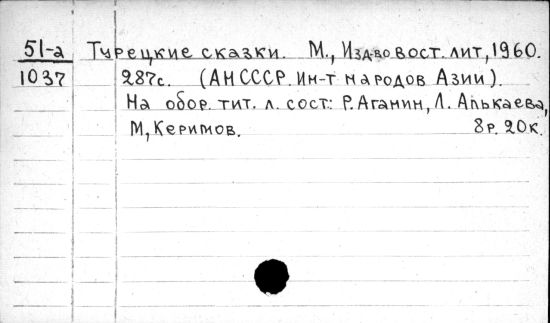 51-а Турецкие сказки. М., Изд-во вост. лит, 1960.
1037 287с. (АН СССР. Ин-т народов Азии).
На обор. тит. л. сост: Р. Аганин, Л. Алькаева,
М, Керимов. 8р. 20к.